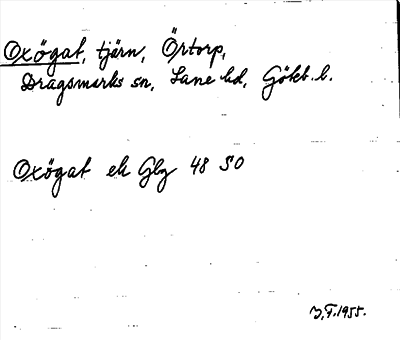 Oxögat, tjärn, Örtorp,
Dragsmarks sn, Lane hd, Göteb. l.
Oxögat ek Glg 48 SO
J.F. 1955.